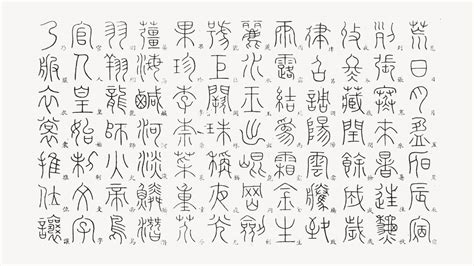 荒日月盈昃辰宿
列張寒來暑往秋
收冬藏閏餘成歲
律呂調陽雲騰致
雨露結為霜金生
麗水玉出崑岡劍
號巨闕珠稱夜光
果珍李柰菜重芥
薑海鹹河淡鱗潛
羽翔龍師火帝鳥
官人皇始制文字
乃服衣裳推位讓